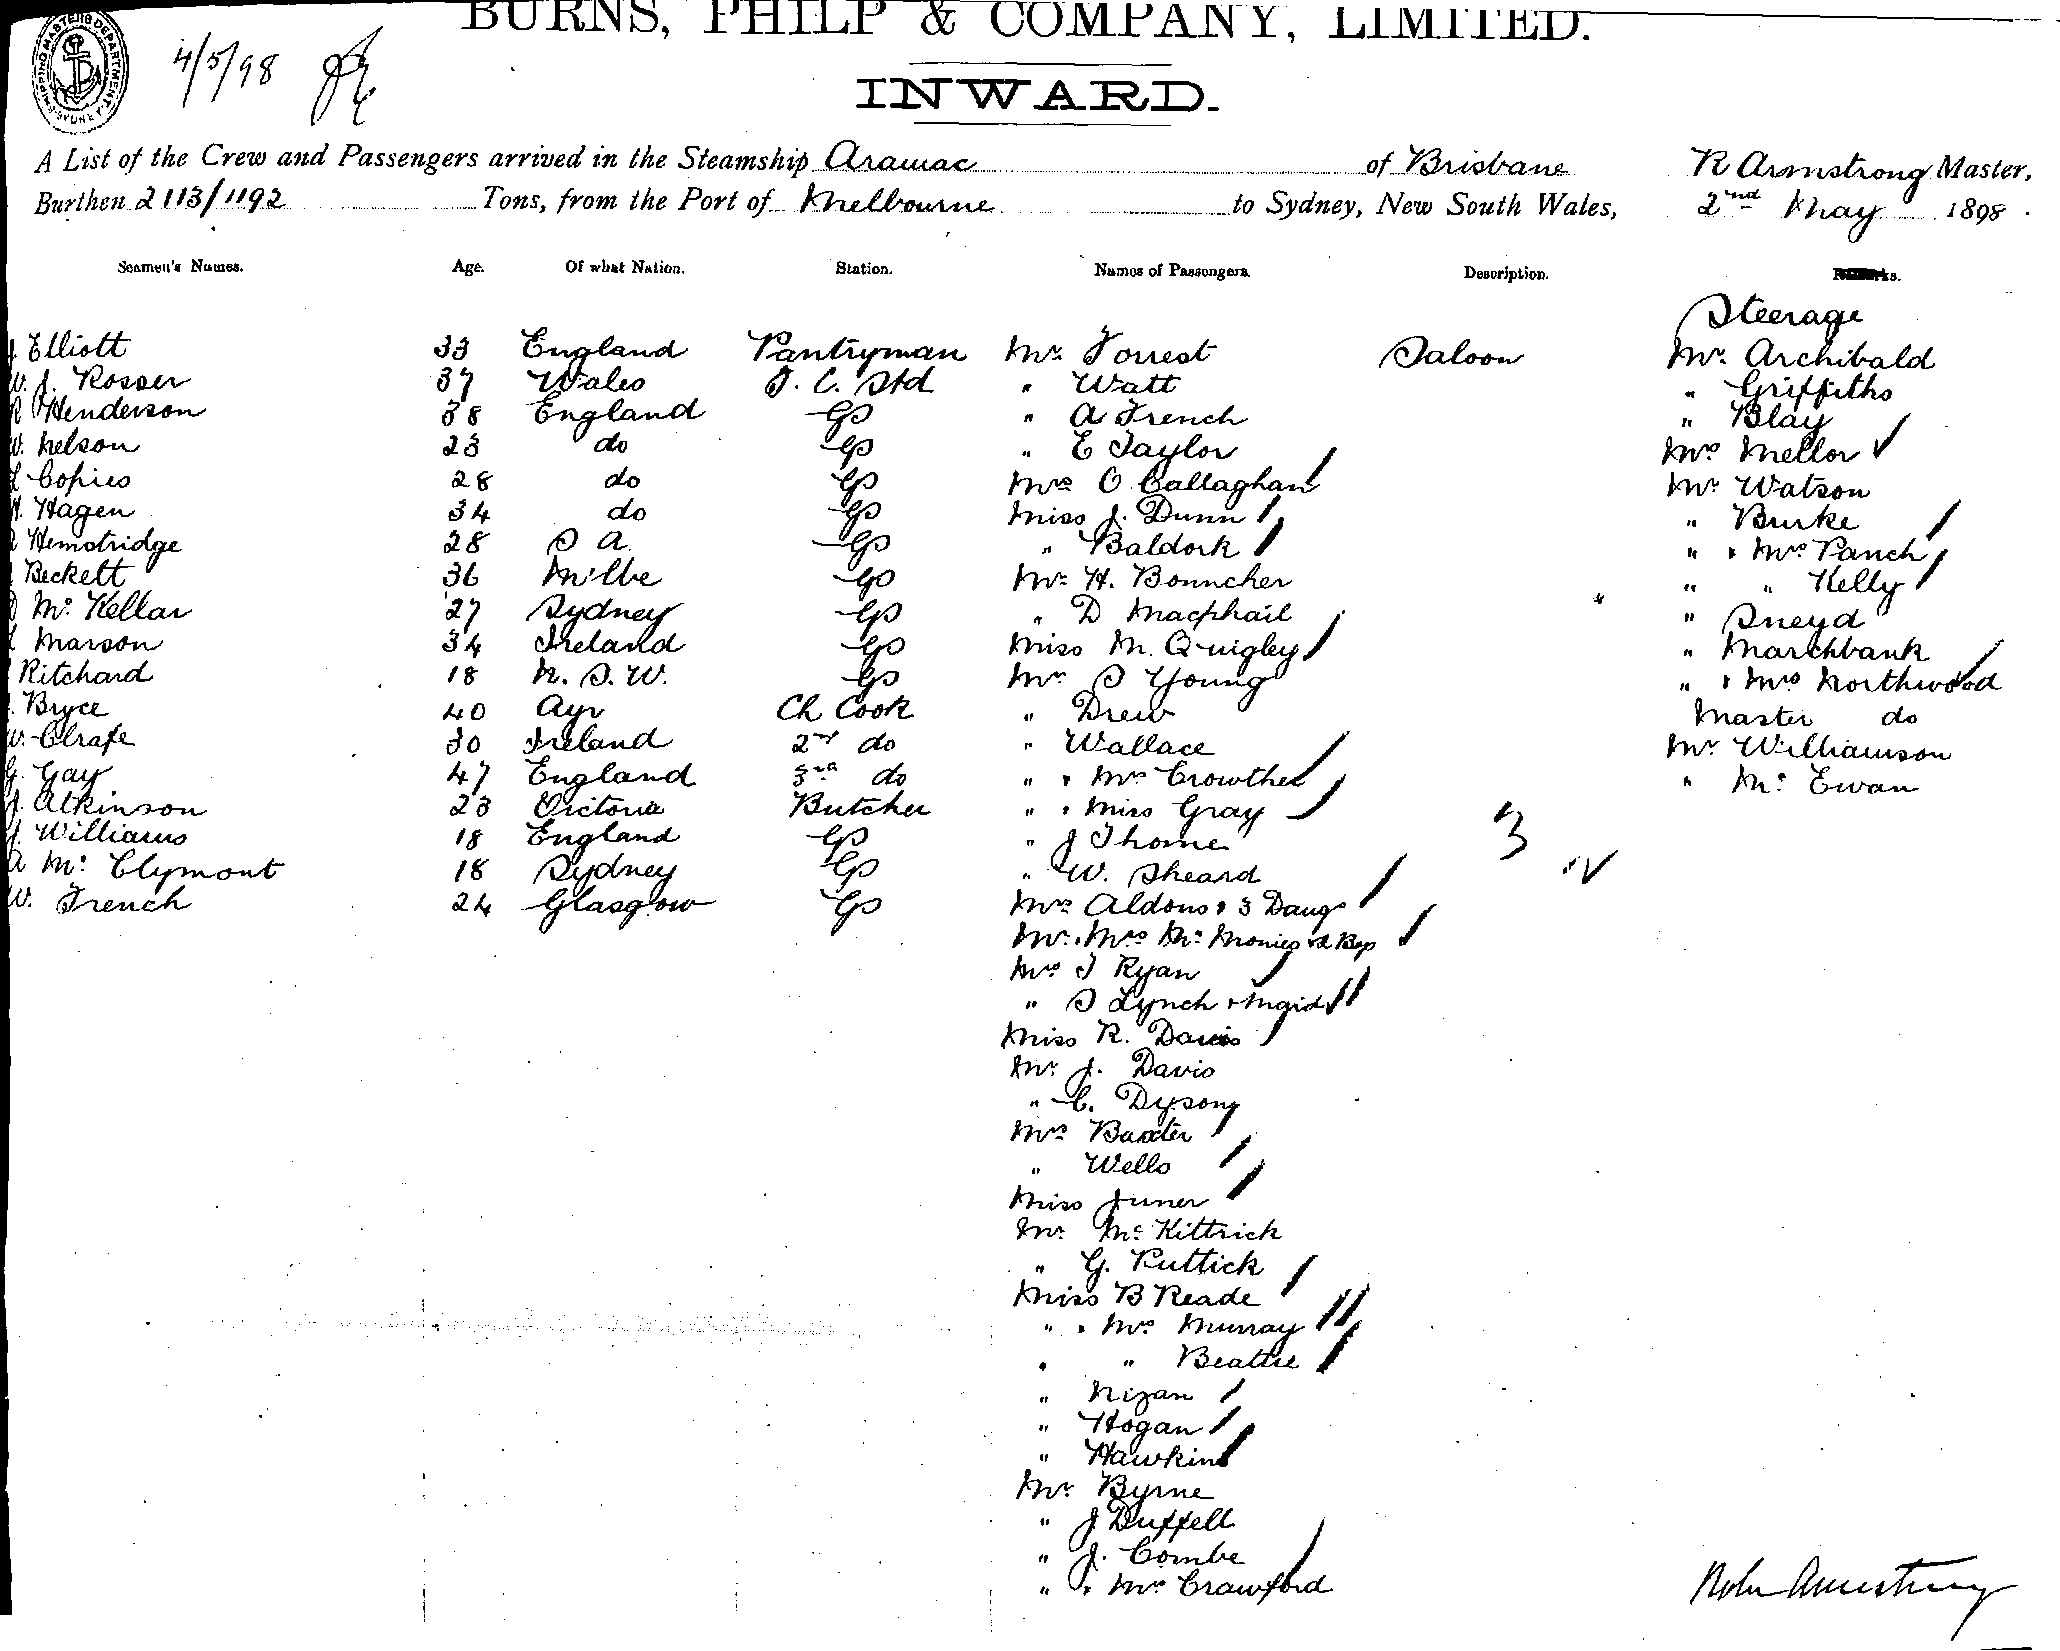 BURNS, PHILP & COMPANY, LIMITED.
4/5/98
INWARD.
A List of the Crew and Passengers arrived in the Steamship Aramac of Brisbane R Armstrong Master,
Burthen 2113/1192 Tons, from the Port of Melbourne to Sydney, New South Wales, 2nd May 1898.
Seamen's Names. Age. Of what Nation. Station. Names of Passengers. Description.
Steerage
Elliott 33 England Pantryman Mr Forrest Saloon Mr. Archibald
W. J. Rosser 37 Wales F. C. Std " Watt " Griffiths
R Henderson 38 England " A French " Blay
W. Nelson 23 do " E Taylor Mrs Mellor
Copies 28 do Mrs O Callaghan Mr Watson
H. Hagen 34 do Miss J. Dunn " Burke
Hemstridge 28 S A " Baldork " & Mrs Panch
Beckett 36 Melbe Mr H. Bonncher " " Kelly
Mc Kellar 27 Sydney " D Macphail " Sneyd
Marson 34 Ireland Miss M. Quigley " Marchbank
Ritchard 18 N. S. W. Mr S Young " & Mrs Northwood
Bryce 40 Ayr Ch Cook " Drew Master do
W. Clrafe 30 Ireland 2nd do " Wallace Mr Williamson
G. Gay 47 England 3rd do " & Mrs Crowther " Mc Ewan
J. Atkinson 23 Victoria Butcher " & Miss Gray
J. Williams 18 England " J Thorne 3
A Mc Clymont 18 Sydney " W. Sheard
W. French 24 Glasgow Mrs Aldons & 3 Daugs
Mr. Mrs Mc Monies
Mrs T Ryan
" S Lynch & Maid
Miss R. Davis
Mr J. Davis
" C. Dyson
Mrs Baxter
" Wells
Miss Juner
Mr Mc Kittrick
" G. Puttick
Miss B Reade
" & Mrs Murray
" " Beattie
" Nizan
" Hogan
" Hawkins
Mr Byrne
" J Duffell
" J. Combe
" & Mrs Crawford
Armstrong